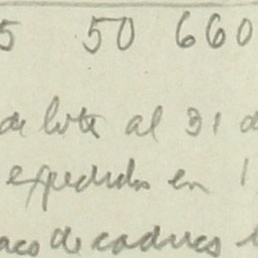 5 50 660
de lote al 31 d
expedidos en 1
de caducs